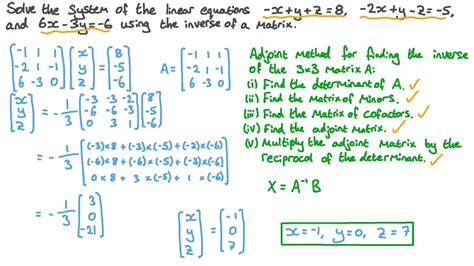 Solve the system of the linear equations -x+y+z=8, -2x+y-z=-5,
and 6x-3y=-6 using the inverse of a matrix.
[-1 1 1; -2 1 -1; 6 -3 0] [x; y; z] = [8; -5; -6]
A = [-1 1 1; -2 1 -1; 6 -3 0]
[x; y; z] = -1/3 [-3 -3 -2; -6 -6 -3; 0 3 1] [8; -5; -6]
= -1/3 [(-3)×8 + (-3)×(-5) + (-2)×(-6); (-6)×8 + (-6)×(-5) + (-3)×(-6); 0×8 + 3×(-5) + 1×(-6)]
= -1/3 [3; 0; -21]
[x; y; z] = [-1; 0; 7]
Adjoint method for finding the inverse
of the 3x3 Matrix A:
(i) Find the determinant of A. ✓
(ii) Find the Matrix of Minors. ✓
(iii) Find the Matrix of Cofactors. ✓
(iv) Find the adjoint Matrix. ✓
(v) Multiply the adjoint Matrix by the
reciprocal of the determinant. ✓
X = A⁻¹B
x=-1, y=0, z=7